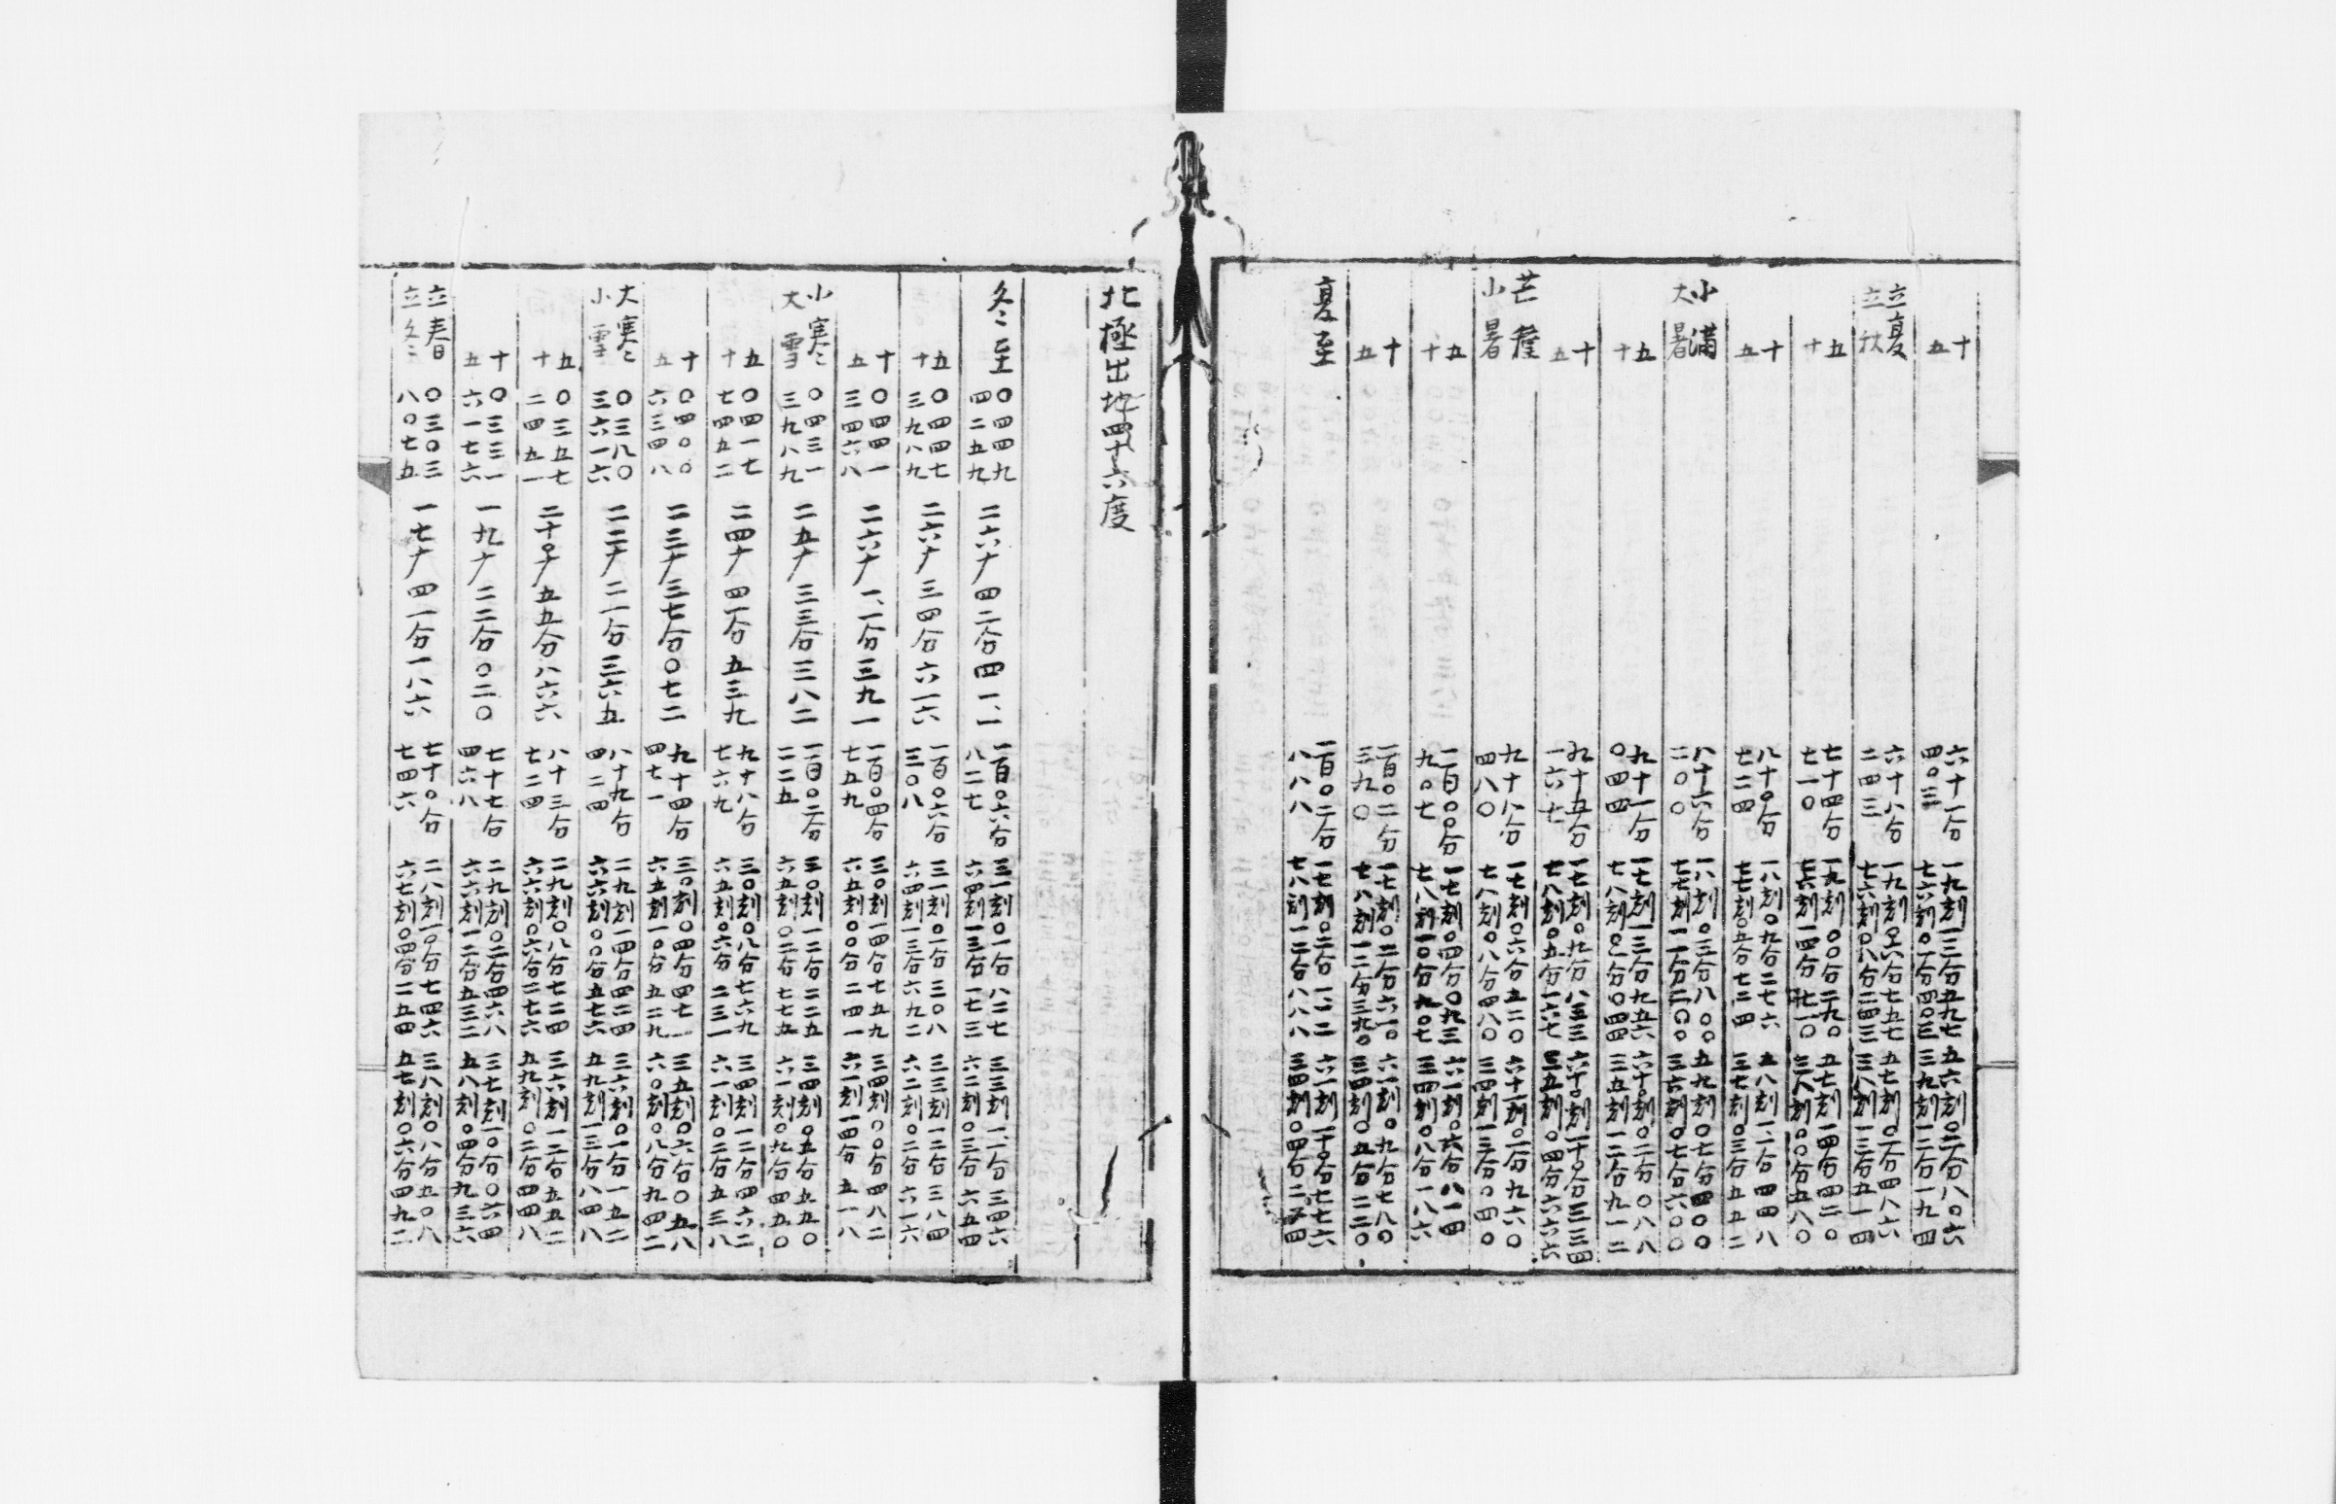 十 六十一分 一九刻一三分五九七 五六刻〇二分八〇六
五 四〇三 七六刻〇一分四〇三 三九刻一二分一九四
立夏 六十八分 一九刻〇六分七五七 五七刻〇一分四八六
立秋 二四三 七六刻〇八分二四三 三八刻一三分五一四
五 七十四分 一九刻〇〇分二九〇 五七刻一四分四二〇
十 七一〇 七六刻一四分七一〇 三八刻〇〇分五八〇
十 八十〇分 一八刻〇九分二七六 五八刻一一分四四八
五 七二四 七七刻〇五分七二四 三七刻〇三分五五二
小滿 八十六分 一八刻〇三分八〇〇 五九刻〇七分四〇〇
大暑 二〇〇 七七刻一一分二〇〇 三六刻〇七分六〇〇
五 九十一分 一七刻一三分九五六 六十〇刻〇二分〇八八
十 〇四四 七八刻〇一分〇四四 三五刻一二分九一二
十 九十五分 一七刻〇九分八三三 六十〇刻一十〇分三三四
五 一六七 七八刻〇五分一六七 三五刻〇四分六六六
芒種 九十八分 一七刻〇六分五二〇 六十一刻〇一分九六〇
小暑 四八〇 七八刻〇八分四八〇 三四刻一三分〇四〇
五 一百〇〇分 一七刻〇四分〇九三 六一刻〇六分八一四
十 九〇七 七八刻一〇分九〇七 三四刻〇八分一八六
十 一百〇二分 一七刻〇二分六一〇 六一刻〇九分七八〇
五 三九〇 七八刻一二分三九〇 三四刻〇五分二二〇
夏至 一百〇二分 一七刻〇二分一一二 六一刻一十〇分七七六
八八八 七八刻一二分八八八 三四刻〇四分二二四
北極出地四十六度
冬至 〇四四九 二六十四二分四一一 一百〇六分 三一刻〇一分八二七 三三刻一一分三四六
四二五九 八二七 六四刻一三分一七三 六二刻〇三分六五四
五 〇四四七 二六十三四分六一六 一百〇六分 三一刻〇一分三〇八 三三刻一二分三八四
十 三九八九 三〇八 六四刻一三分六九二 六二刻〇二分六一六
十 〇四四一 二六十一一分三九一 一百〇四分 三〇刻一四分七五九 三四刻〇〇分四八二
五 三四六八 七五九 六五刻〇〇分二四一 六一刻一四分五一八
小寒 〇四三一 二五十三三分三八二 一百〇二分 三〇刻一二分二二五 三四刻〇五分五五〇
大雪 三九八九 二二五 六五刻〇二分七七五 六一刻〇九分四五〇
五 〇四一七 二四十四一分五三九 九十八分 三〇刻〇八分七六九 三四刻一二分四六二
十 七四五二 七六九 六五刻〇六分二三一 六一刻〇二分五三八
十 〇四〇〇 二三十三七分〇七二 九十四分 三〇刻〇四分四七一 三五刻〇六分〇五八
五 六三四八 四七一 六五刻一〇分五二九 六〇刻〇八分九四二
大寒 〇三八〇 二二十二一分三六五 八十九分 二九刻一四分四二四 三六刻〇一分一五二
小雪 三六一六 四二四 六六刻〇〇分五七六 五九刻一三分八四八
五 〇三五七 二十〇十五五分八六六 八十三分 二九刻〇八分七二四 三六刻一二分五五二
十 二四五一 七二四 六六刻〇六分二七六 五九刻〇二分四四八
十 〇三三一 一九十二二分〇二〇 七十七分 二九刻〇二分四六八 三七刻一〇分〇六四
五 六一七六 四六八 六六刻一二分五三二 五八刻〇四分九三六
立春 〇三〇三 一七十四一分一八六 七十〇分 二八刻一〇分七四六 三八刻〇八分五〇八
立冬 八〇七五 七四六 六七刻〇四分二五四 五七刻〇六分四九二